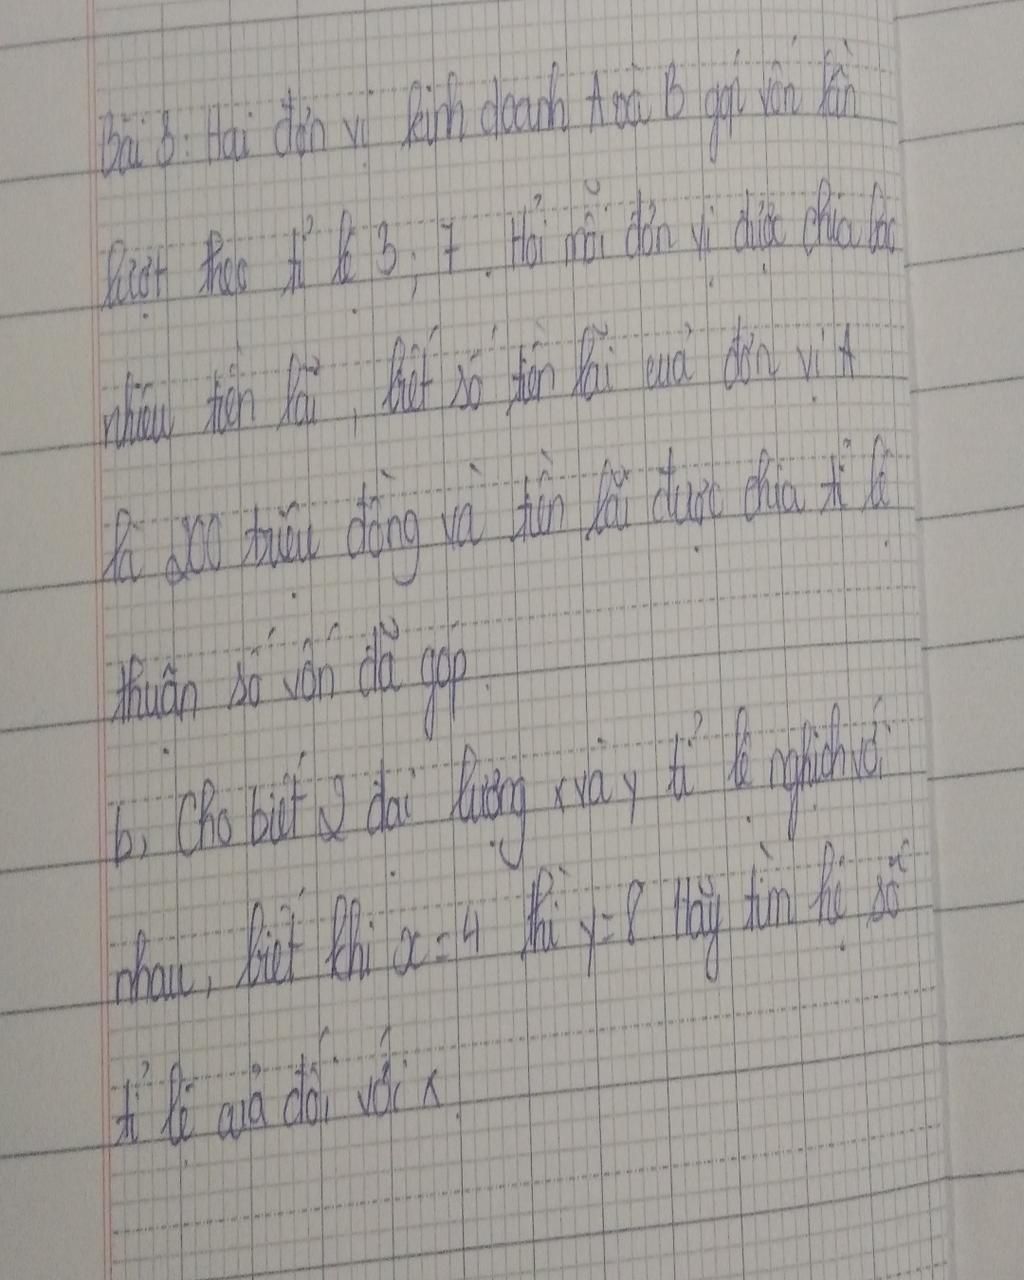 Bài 3: Hai đơn vị kinh doanh A và B góp vốn lần
lượt theo tỉ lệ 3; 7. Hỏi mỗi đơn vị được chia bao
nhiêu tiền lãi, biết số tiền lãi của đơn vị A
là 200 triệu đồng và tiền lãi được chia tỉ lệ
thuận số vốn đã góp.
b, Cho biết 2 đại lượng x và y tỉ lệ nghịch với
nhau, biết khi x = 4 thì y = 8 Hãy tìm hệ số
tỉ lệ của đối với x